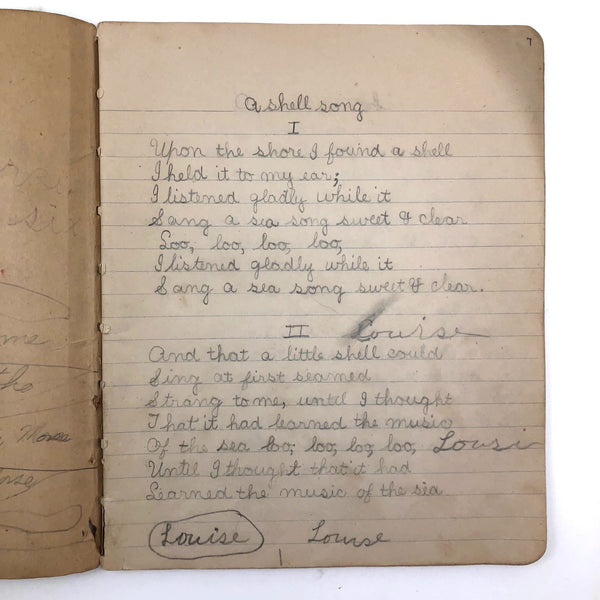 7
A shell song
I
Upon the shore I found a shell
I held it to my ear;
I listened gladly while it
Sang a sea song sweet & clear
Loo, loo, loo, loo,
I listened gladly while it
Sang a sea song sweet & clear.
II Louise
And that a little shell could
Sing at first seamed
Strang to me, until I thought
That it had learned the music
Of the sea loo, loo, loo, loo, Lousi
Until I thought that it had
Learned the music of the sea
Louise Louise
six
me
the
Morse